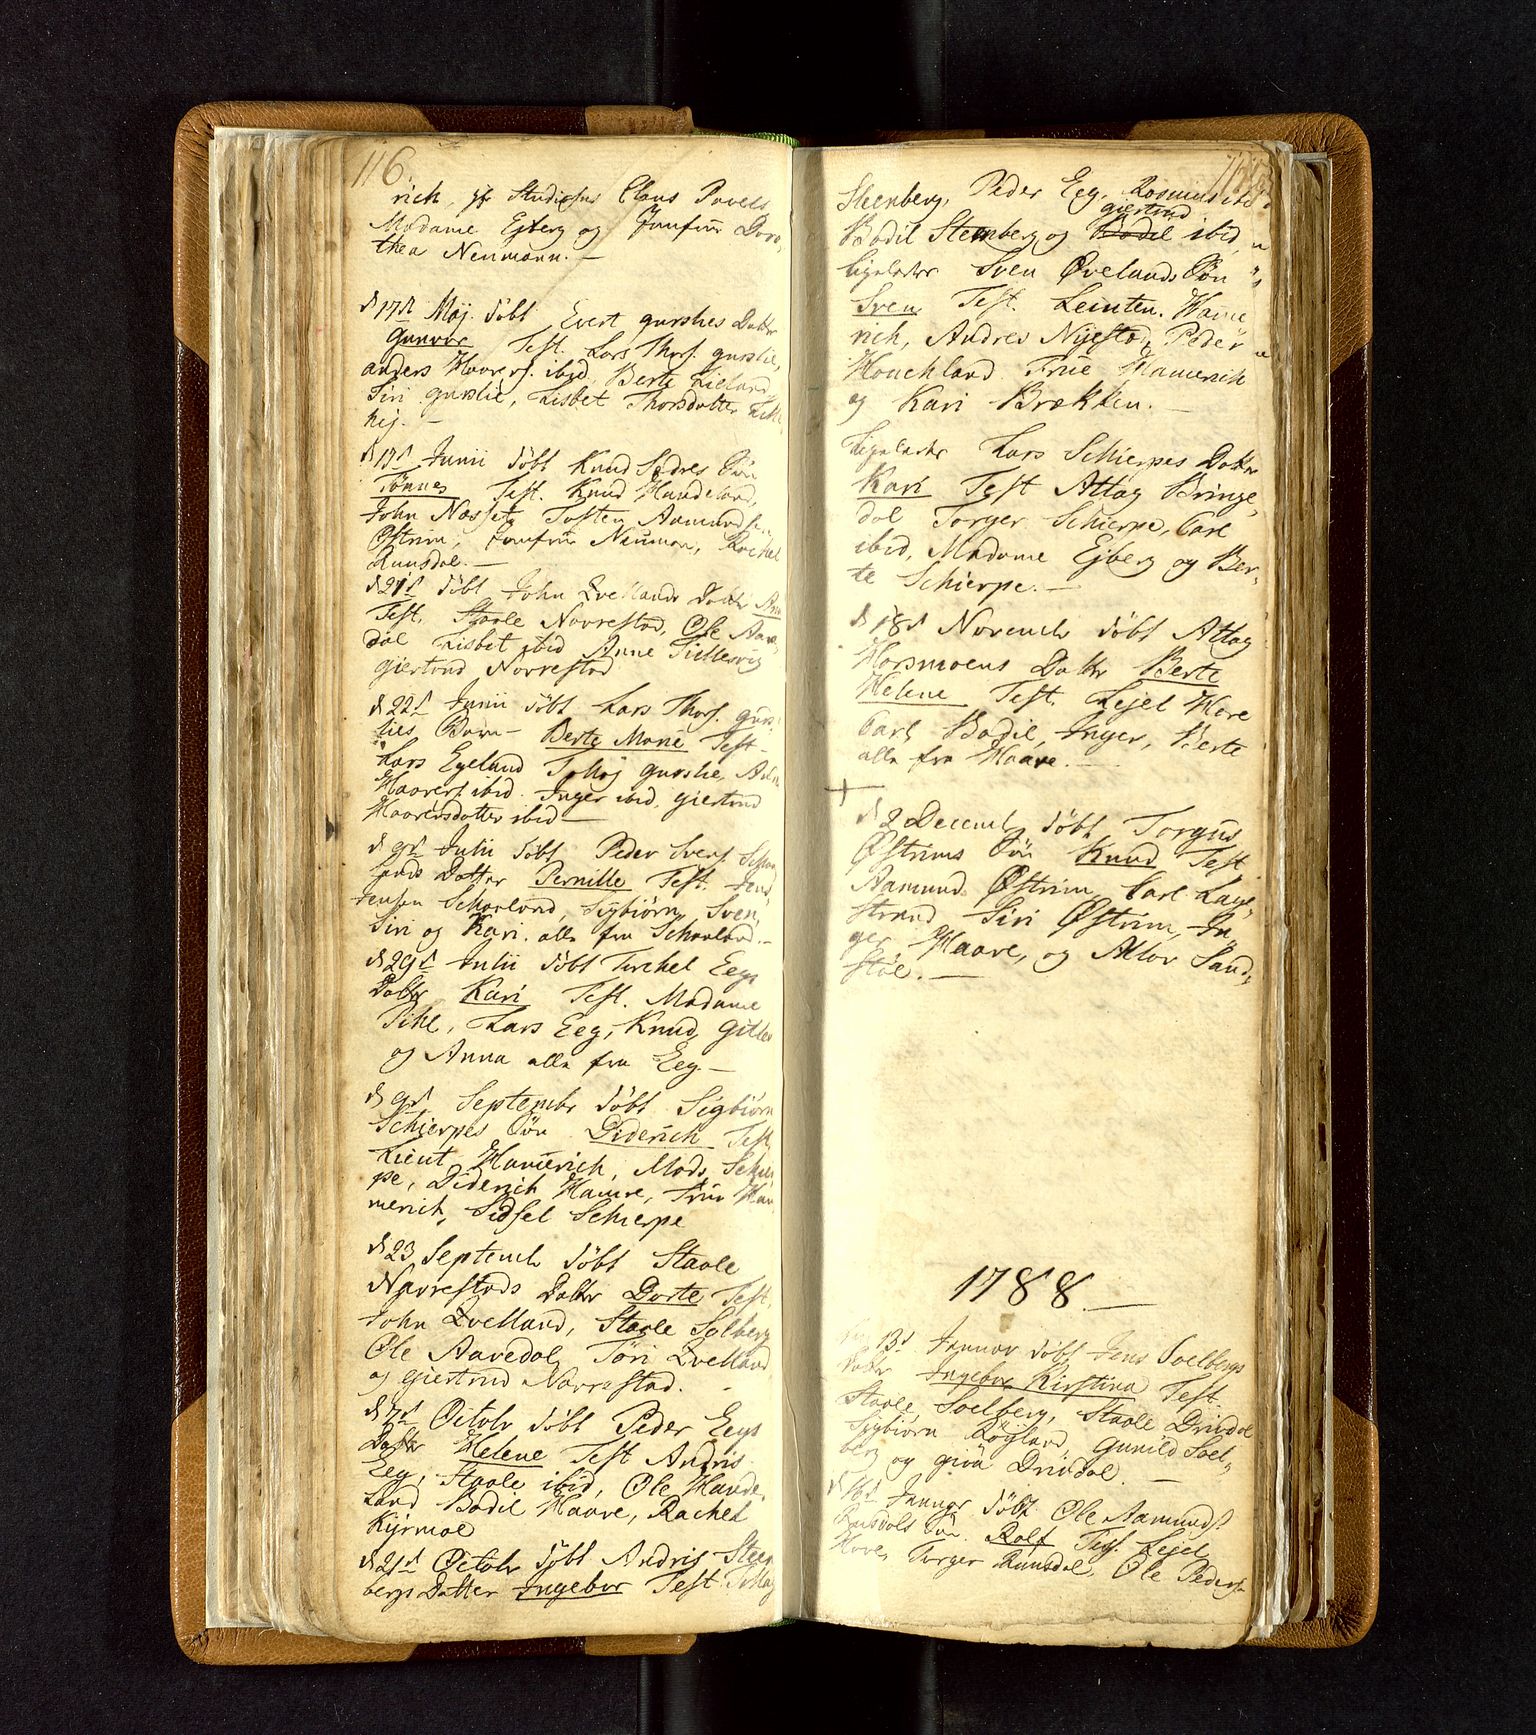 116.
rich, Studiosus Claus Povels
Madame Ejberg og Jomfrue Doro,
thea Neumann. —
d 17d Maj. döbt Evert gurslies Datter
Gunvor Test. Lars Thors. gurslie,
anders Haavers. ibid, Berte Lieland
Siri gurslie, Lisbet Thorsdatter
hej. —
d 17d Junii döbt Knud Sødres Sön
Tönnes Test. Knud Haneland,
John Næsset, Tosten Aamundsen
Østrim, Jomfrue Neuman, Rachel
Ruusdal. —
d 21d döbt John Qvellands Datter
Test. Staale Navrestad, Ole Aave,
dal Lisbet ibid Anne
giertrud Navrestad
d 22d Junii döbt Lars Thors. gurs
lies Barn — Berte Marie Test —
Lars Egeland Tollag gurslie,
Haavers. ibid. Inger ibid, giertrud
Haaversdatter ibid —
d 9d Julii döbt Peder Svens.
lands Datter Pernille Test.
Jensen Schaaland, Sigbiörn, Sven,
Siri og Kari. alle fra Schaaland. —
d 29d Julii döbt Terchel Eegs
Datter Kari Test. Madame
Pihl, Lars Eeg, Knud, Gitlev
og Anna alle fra Eeg —
d 9d Septembr döbt Sigbiörn
Schierpes Sön Diderich Test,
Lieut Hamerich, Mads Schier
pe, Diderich Hamre, Frue Ham
merich, Sidsel Schierpe
d 23 Septembr döbt Staale
Navrestads Datter Dorte Test,
John Qvelland, Staale Solberg
Ole Aavedal, Töri Qvelland
og giertrud Navrestad.
d 7d Octobr döbt Peder Eegs
Datter Helene Test Andris
Eeg, Staale ibid, Ole Hande,
land Bodil Haave, Rachel
Kijrmoe
d 21d Octobr döbt Andris Steen
bergs Datter Ingebor Test Tollag
Steenberg, Peder Eeg, Rasmus ibid
giertrud
Bodil Steenberg og Bodil ibid,
Ligeledes Sven Øvelands Sön
Sven Test. Leinten. Hame
rich, Andres Nijestad, Peder
Houchland Frue Hamerich
og Kari Brækken. —
Ligeledes Lars Schierpes Datter
Kari Test Attag Bringe,
dal Torger Schierpe, Carl
ibid, Madame Ejberg og Ber,
te Schierpe. —
d 18d Novembr döbt Attag
Horsmoens Datter Berte
Helene Test. Lejel Hove
Carl Bodil, Inger, Berte
alle fra Haave. —
d 2 Decembr döbt Torgus
Østrims Sön Knud Test
Aamund Østrim, Carl Lage,
strand Siri Østrim, In
ger Haave, og Attor Sand,
støl. —
1788. —
13d Januar döbt Jens Soelbergs
Datter Ingebor Kirstina Test.
Staale Soelberg, Staale Drivdal
Sigbiörn Röyland, gunild Soel,
berg og giöa Drivdal. —
d 16d Januar döbt Ole Aamunds.
Ruusdals Sön. Rolf Test. Lejel
Hove, Torger Ruusdal, Ole Peders.